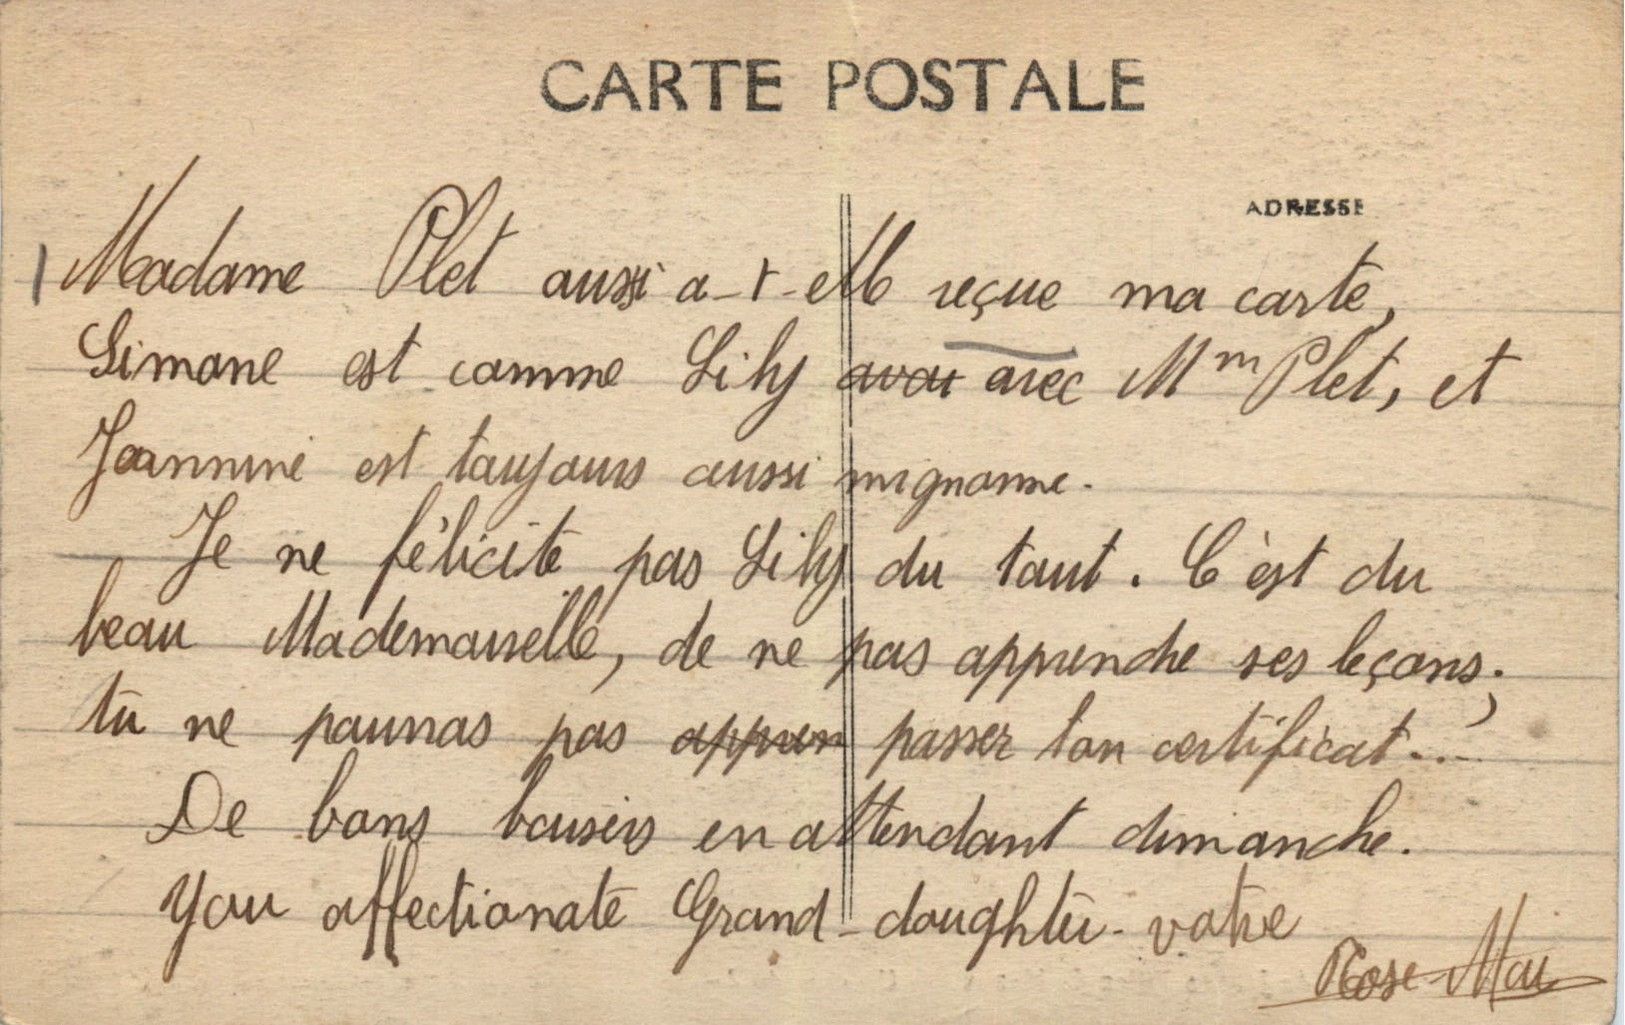 CARTE POSTALE
ADRESSE
Madame Plet aussi a-t-elle reçue ma carte,
Simone est comme Lily avai avec Mm Plet, et
Joannine est toujours aussi mignonne.
Je ne félicite pas Lily du tout. C'est du
beau Mademoiselle, de ne pas apprendre ses leçons;
tu ne pourras pas appren passer ton certificat...
De bons baisers en attendant dimanche.
You affectionate Grand-daughter. votre
Rose-Mai